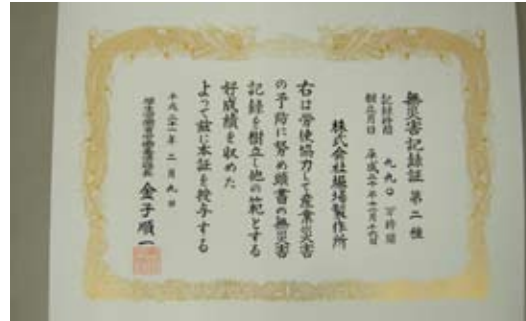 無災害記録証 第二種
記録時間 九九〇万時間
樹立月日 平成二十年十一月十六日
株式会社堀場製作所
右は労使協力して産業災害
の予防に努め頭書の無災害
記録を樹立し他の範とする
好成績を収めた
よって玆に本証を授与する
平成二十一年二月九日
厚生労働省労働基準局長 金子順一